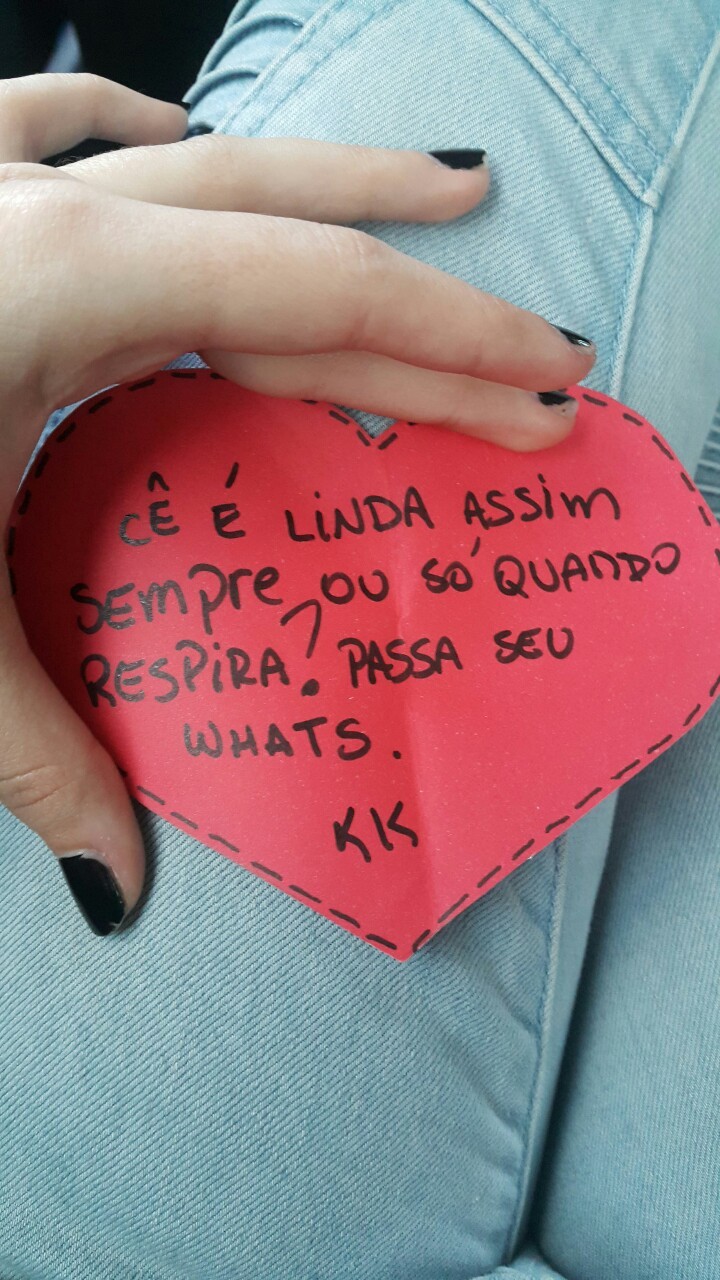 CÊ É LINDA ASSIM
SEMPRE OU SÓ QUANDO
RESPIRA? PASSA SEU
WHATS.
KK